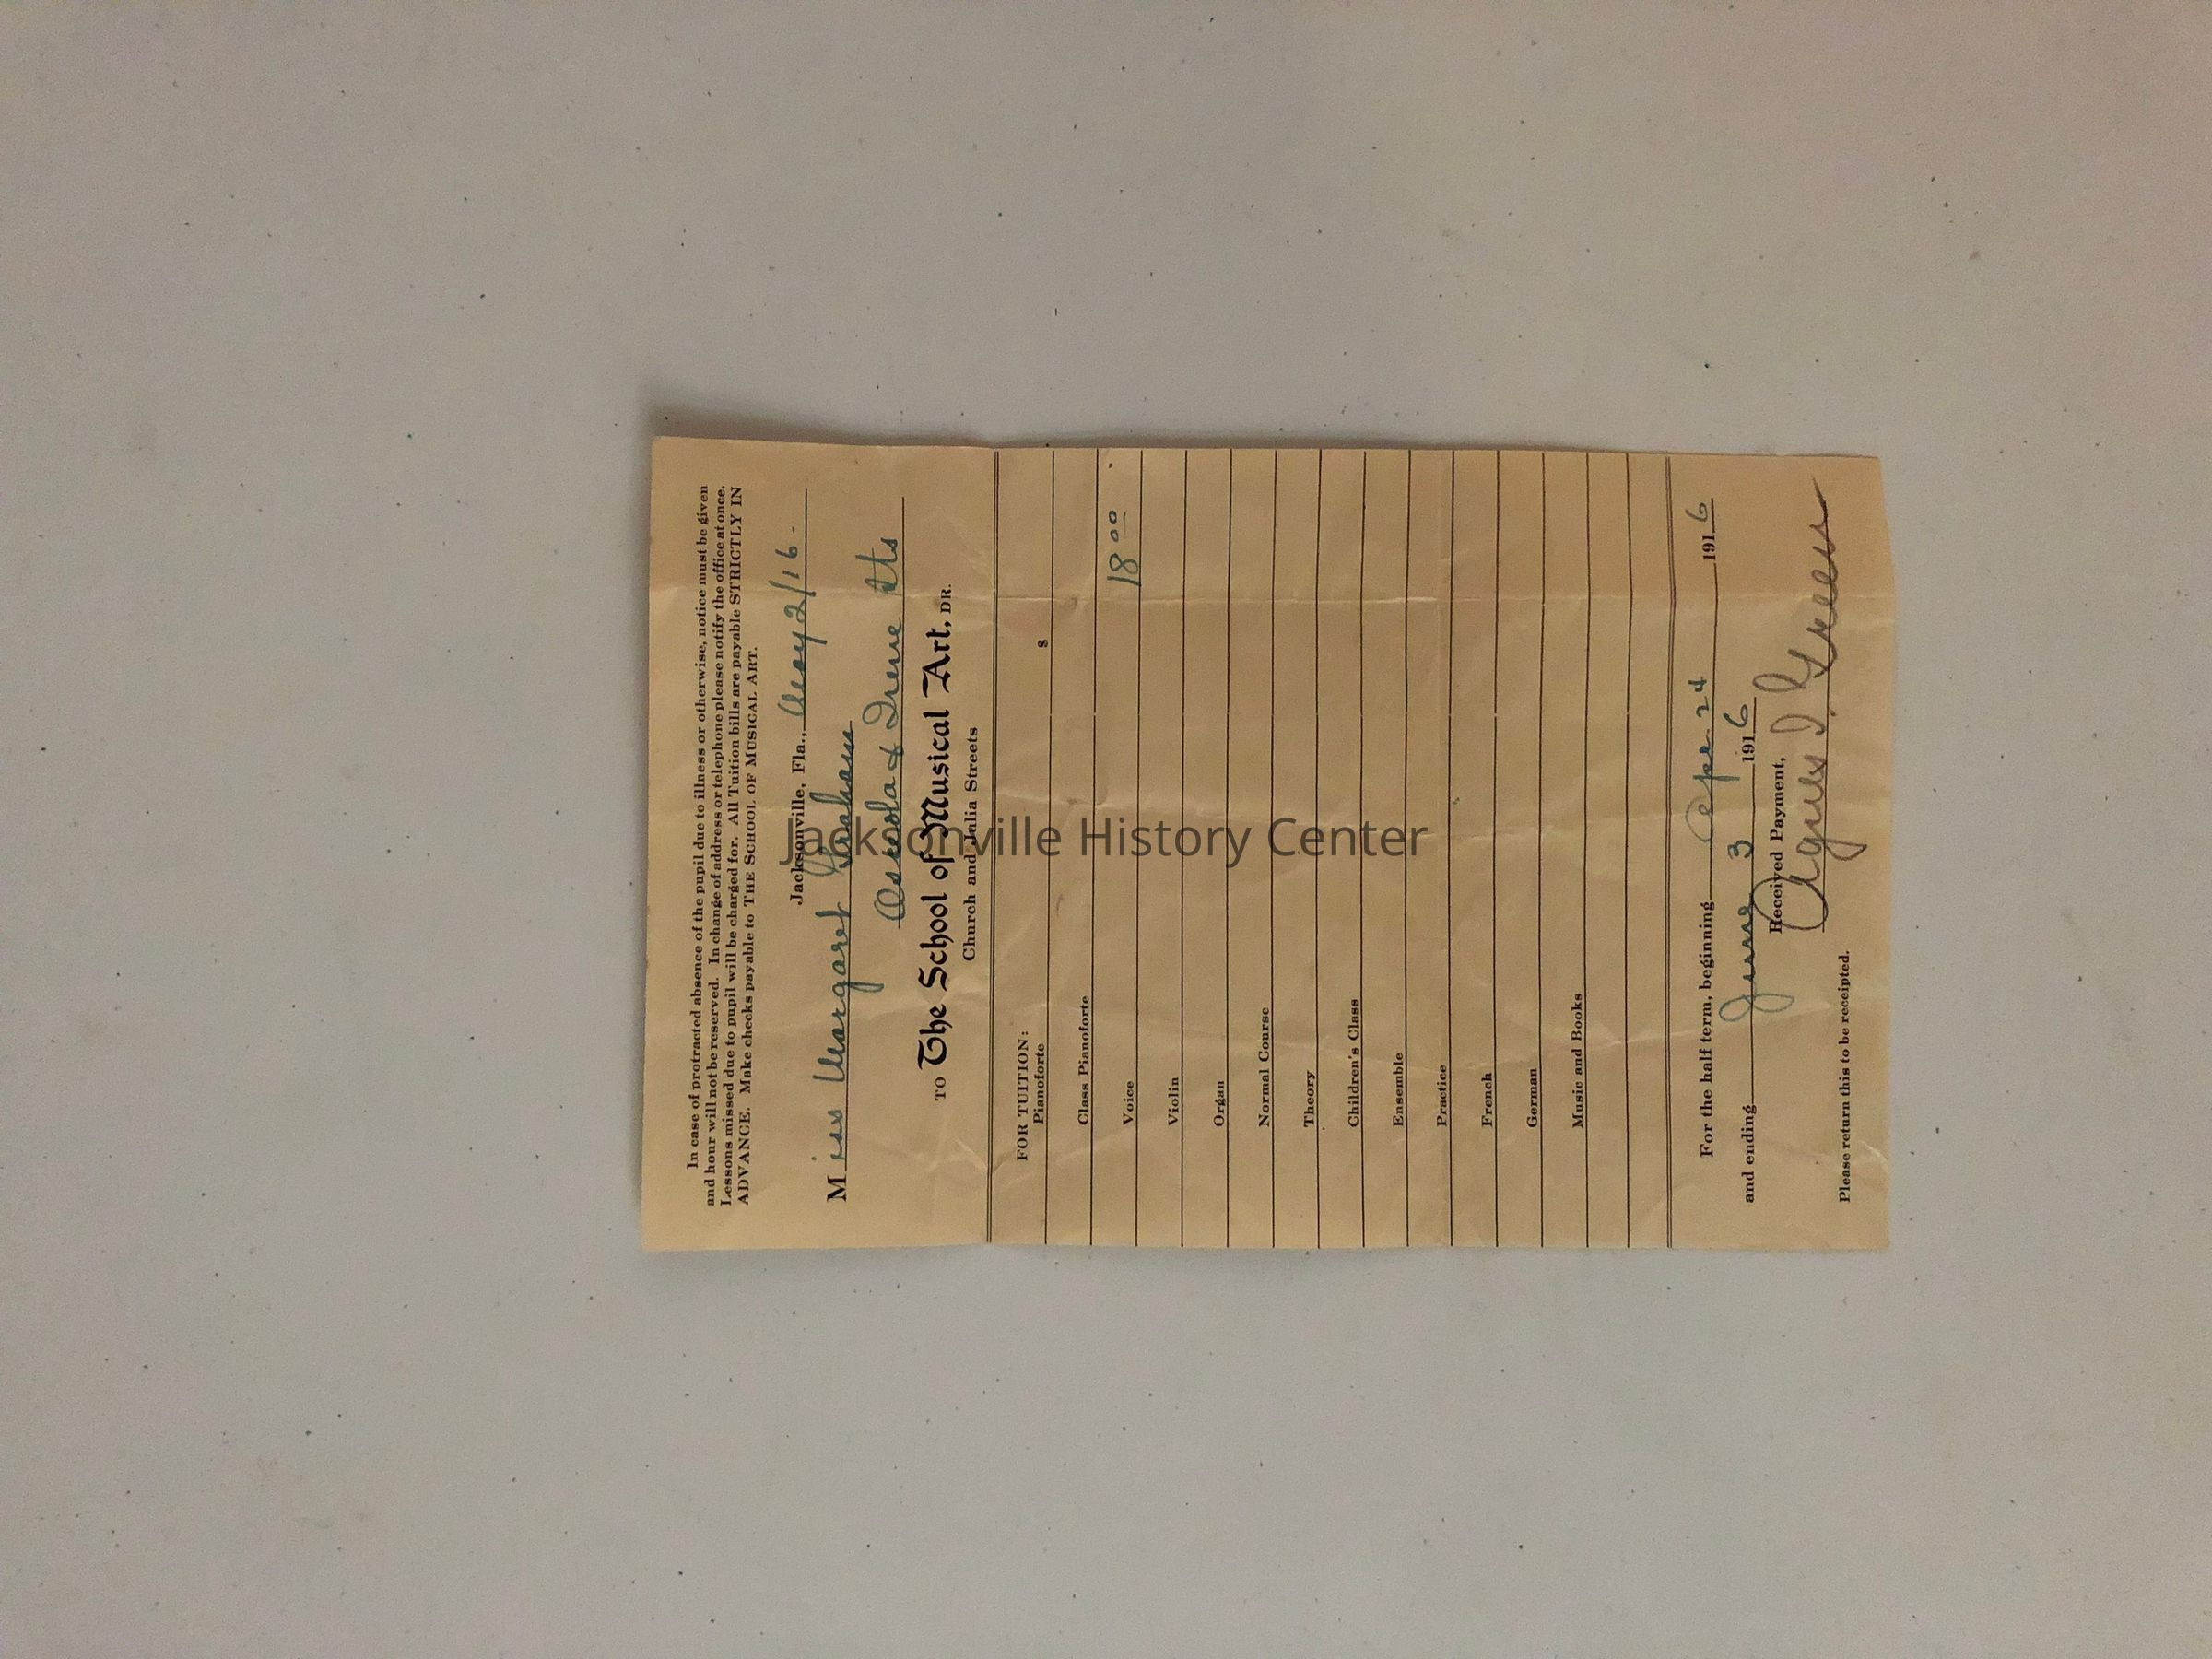 In case of protracted absence of the pupil due to illness or otherwise, notice must be given
and hour will not be reserved. In change of address or telephone please notify the office at once.
Lessons missed due to pupil will be charged for. All Tuition bills are payable STRICTLY IN
ADVANCE. Make checks payable to THE SCHOOL OF MUSICAL ART.
Jacksonville, Fla., May 2/16-
Miss Margaret
Osceola & Irene Sts
TO The School of Musical Art, DR.
Church and Julia Streets
FOR TUITION:
Pianoforte $
Class Pianoforte
Voice 18 00
Violin
Organ
Normal Course
Theory
Children's Class
Ensemble
Practice
French
German
Music and Books
For the half term, beginning Apr. 24 1916
and ending June 3 1916
Received Payment,
Agnes I. Green
Please return this to be receipted.
Jacksonville History Center